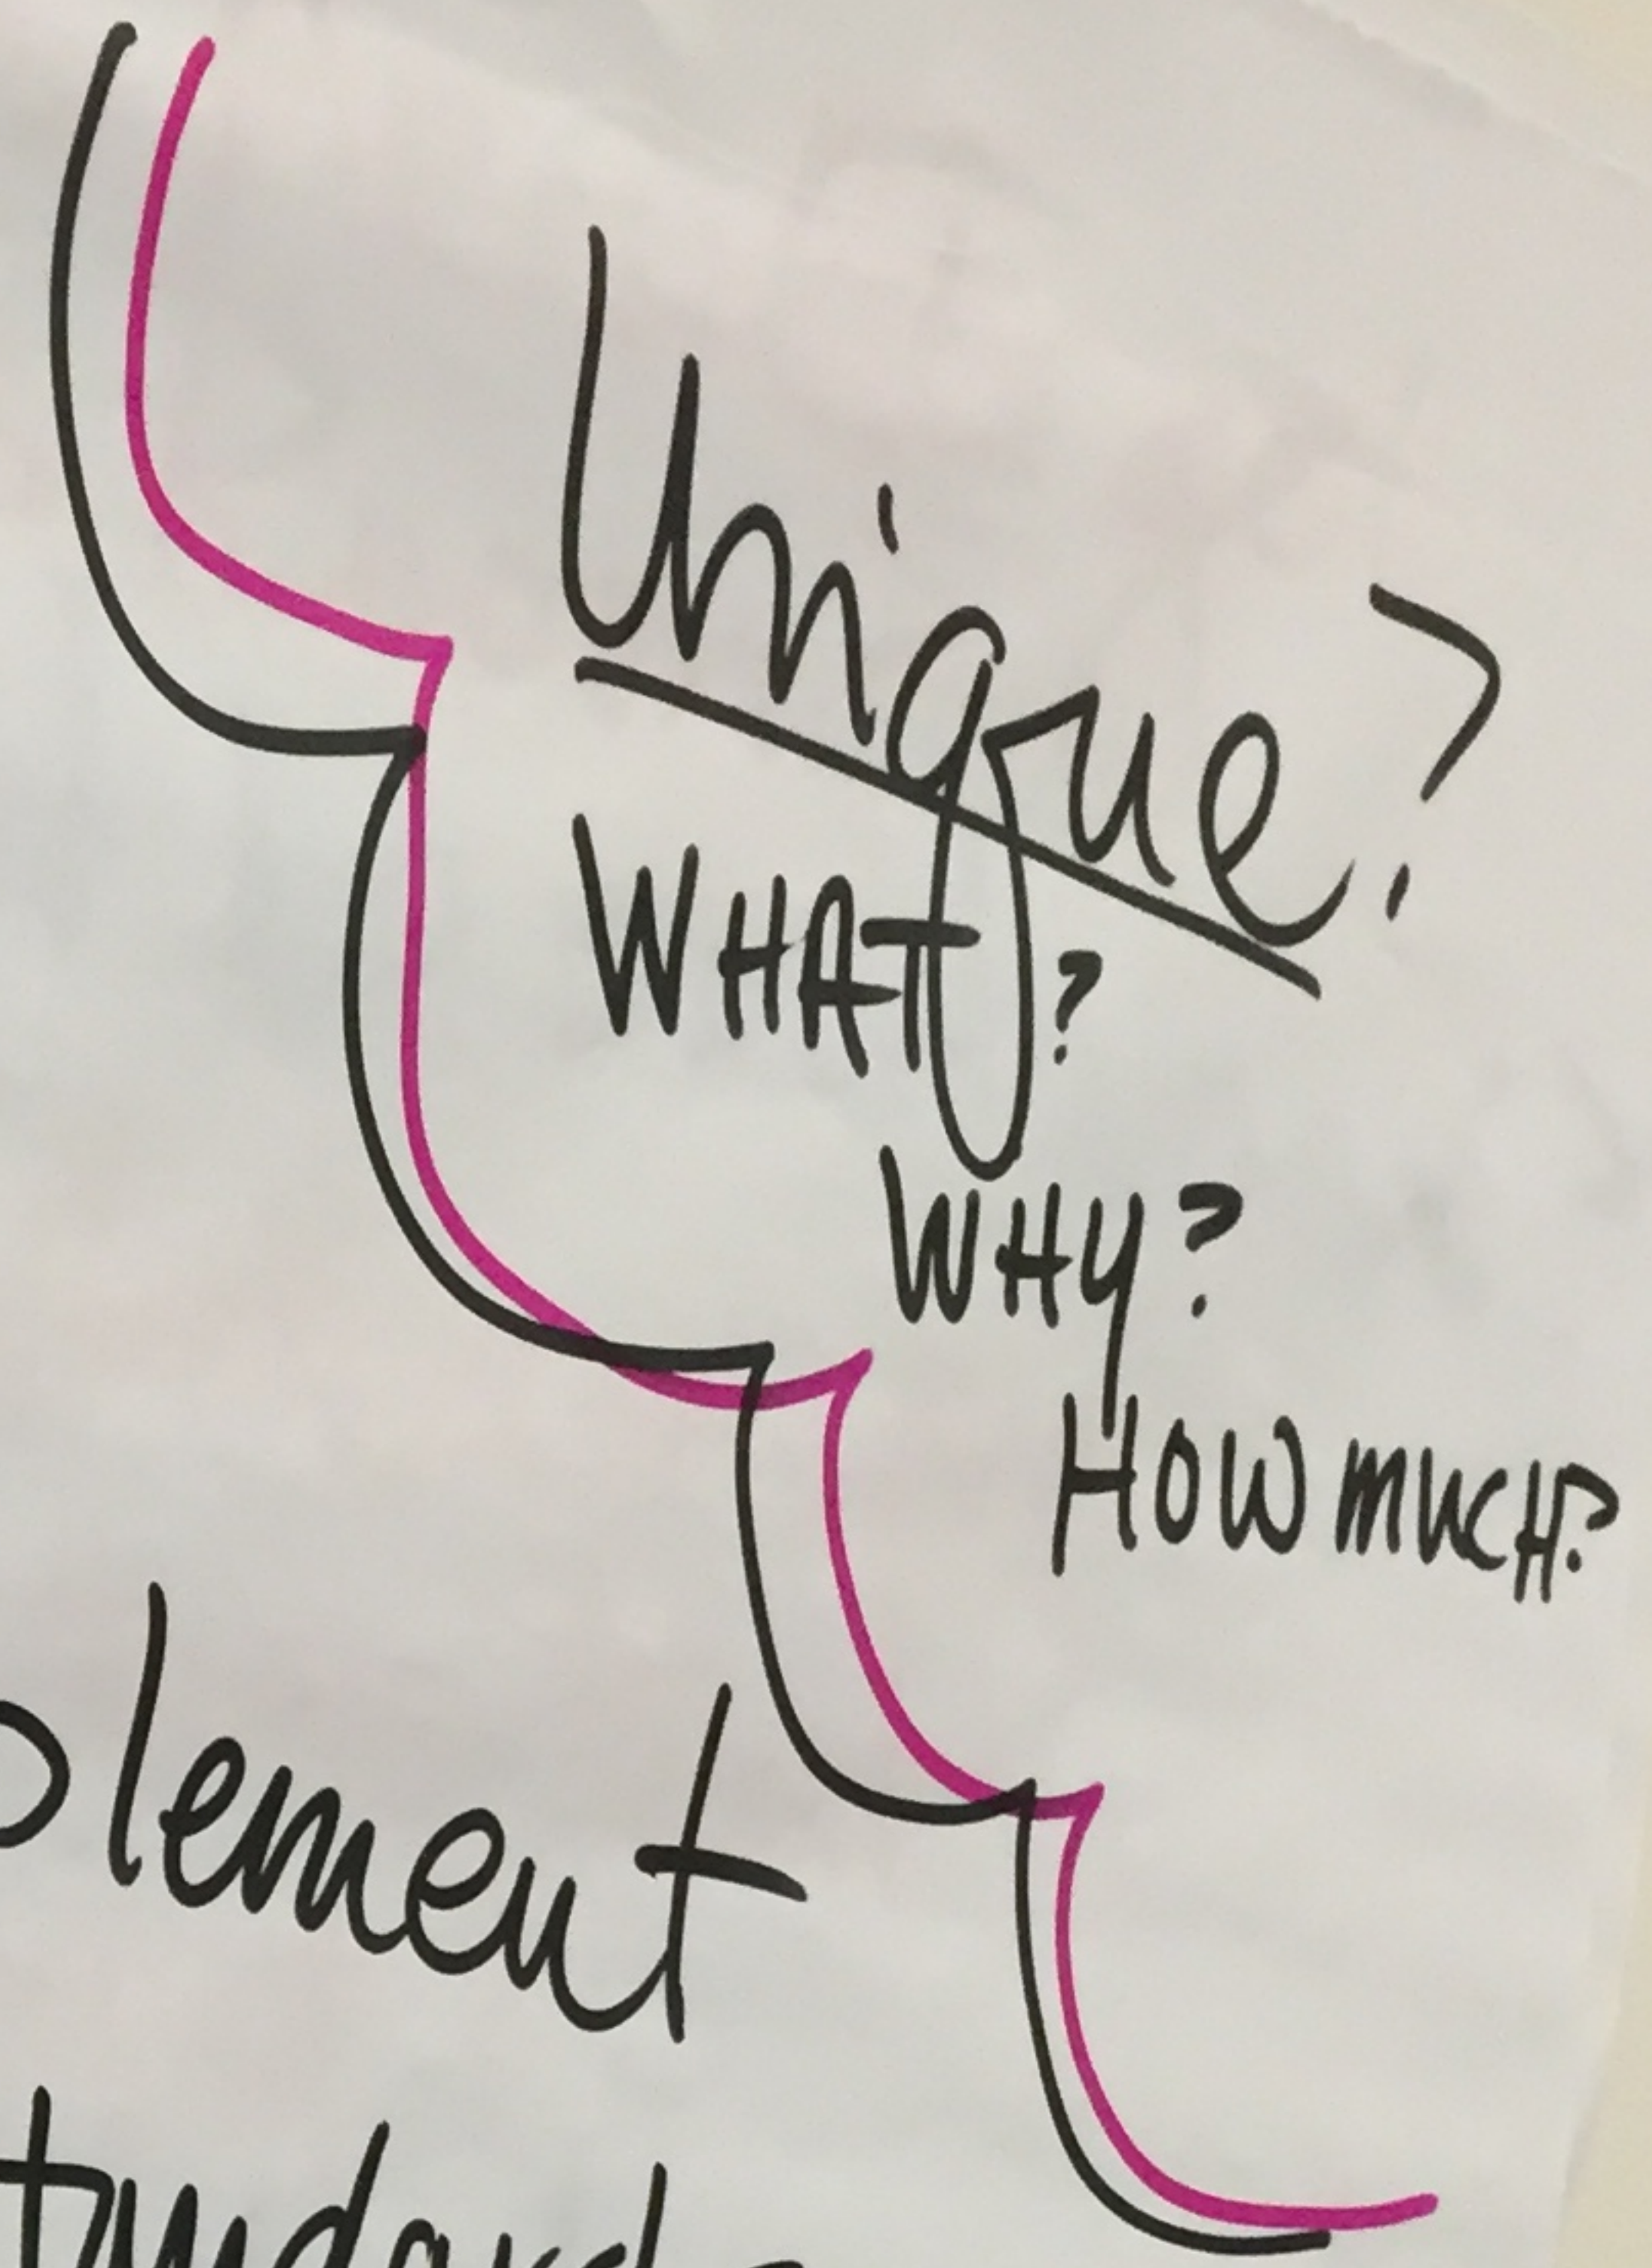 Unique?
WHAT?
WHY?
HOW MUCH?
plement